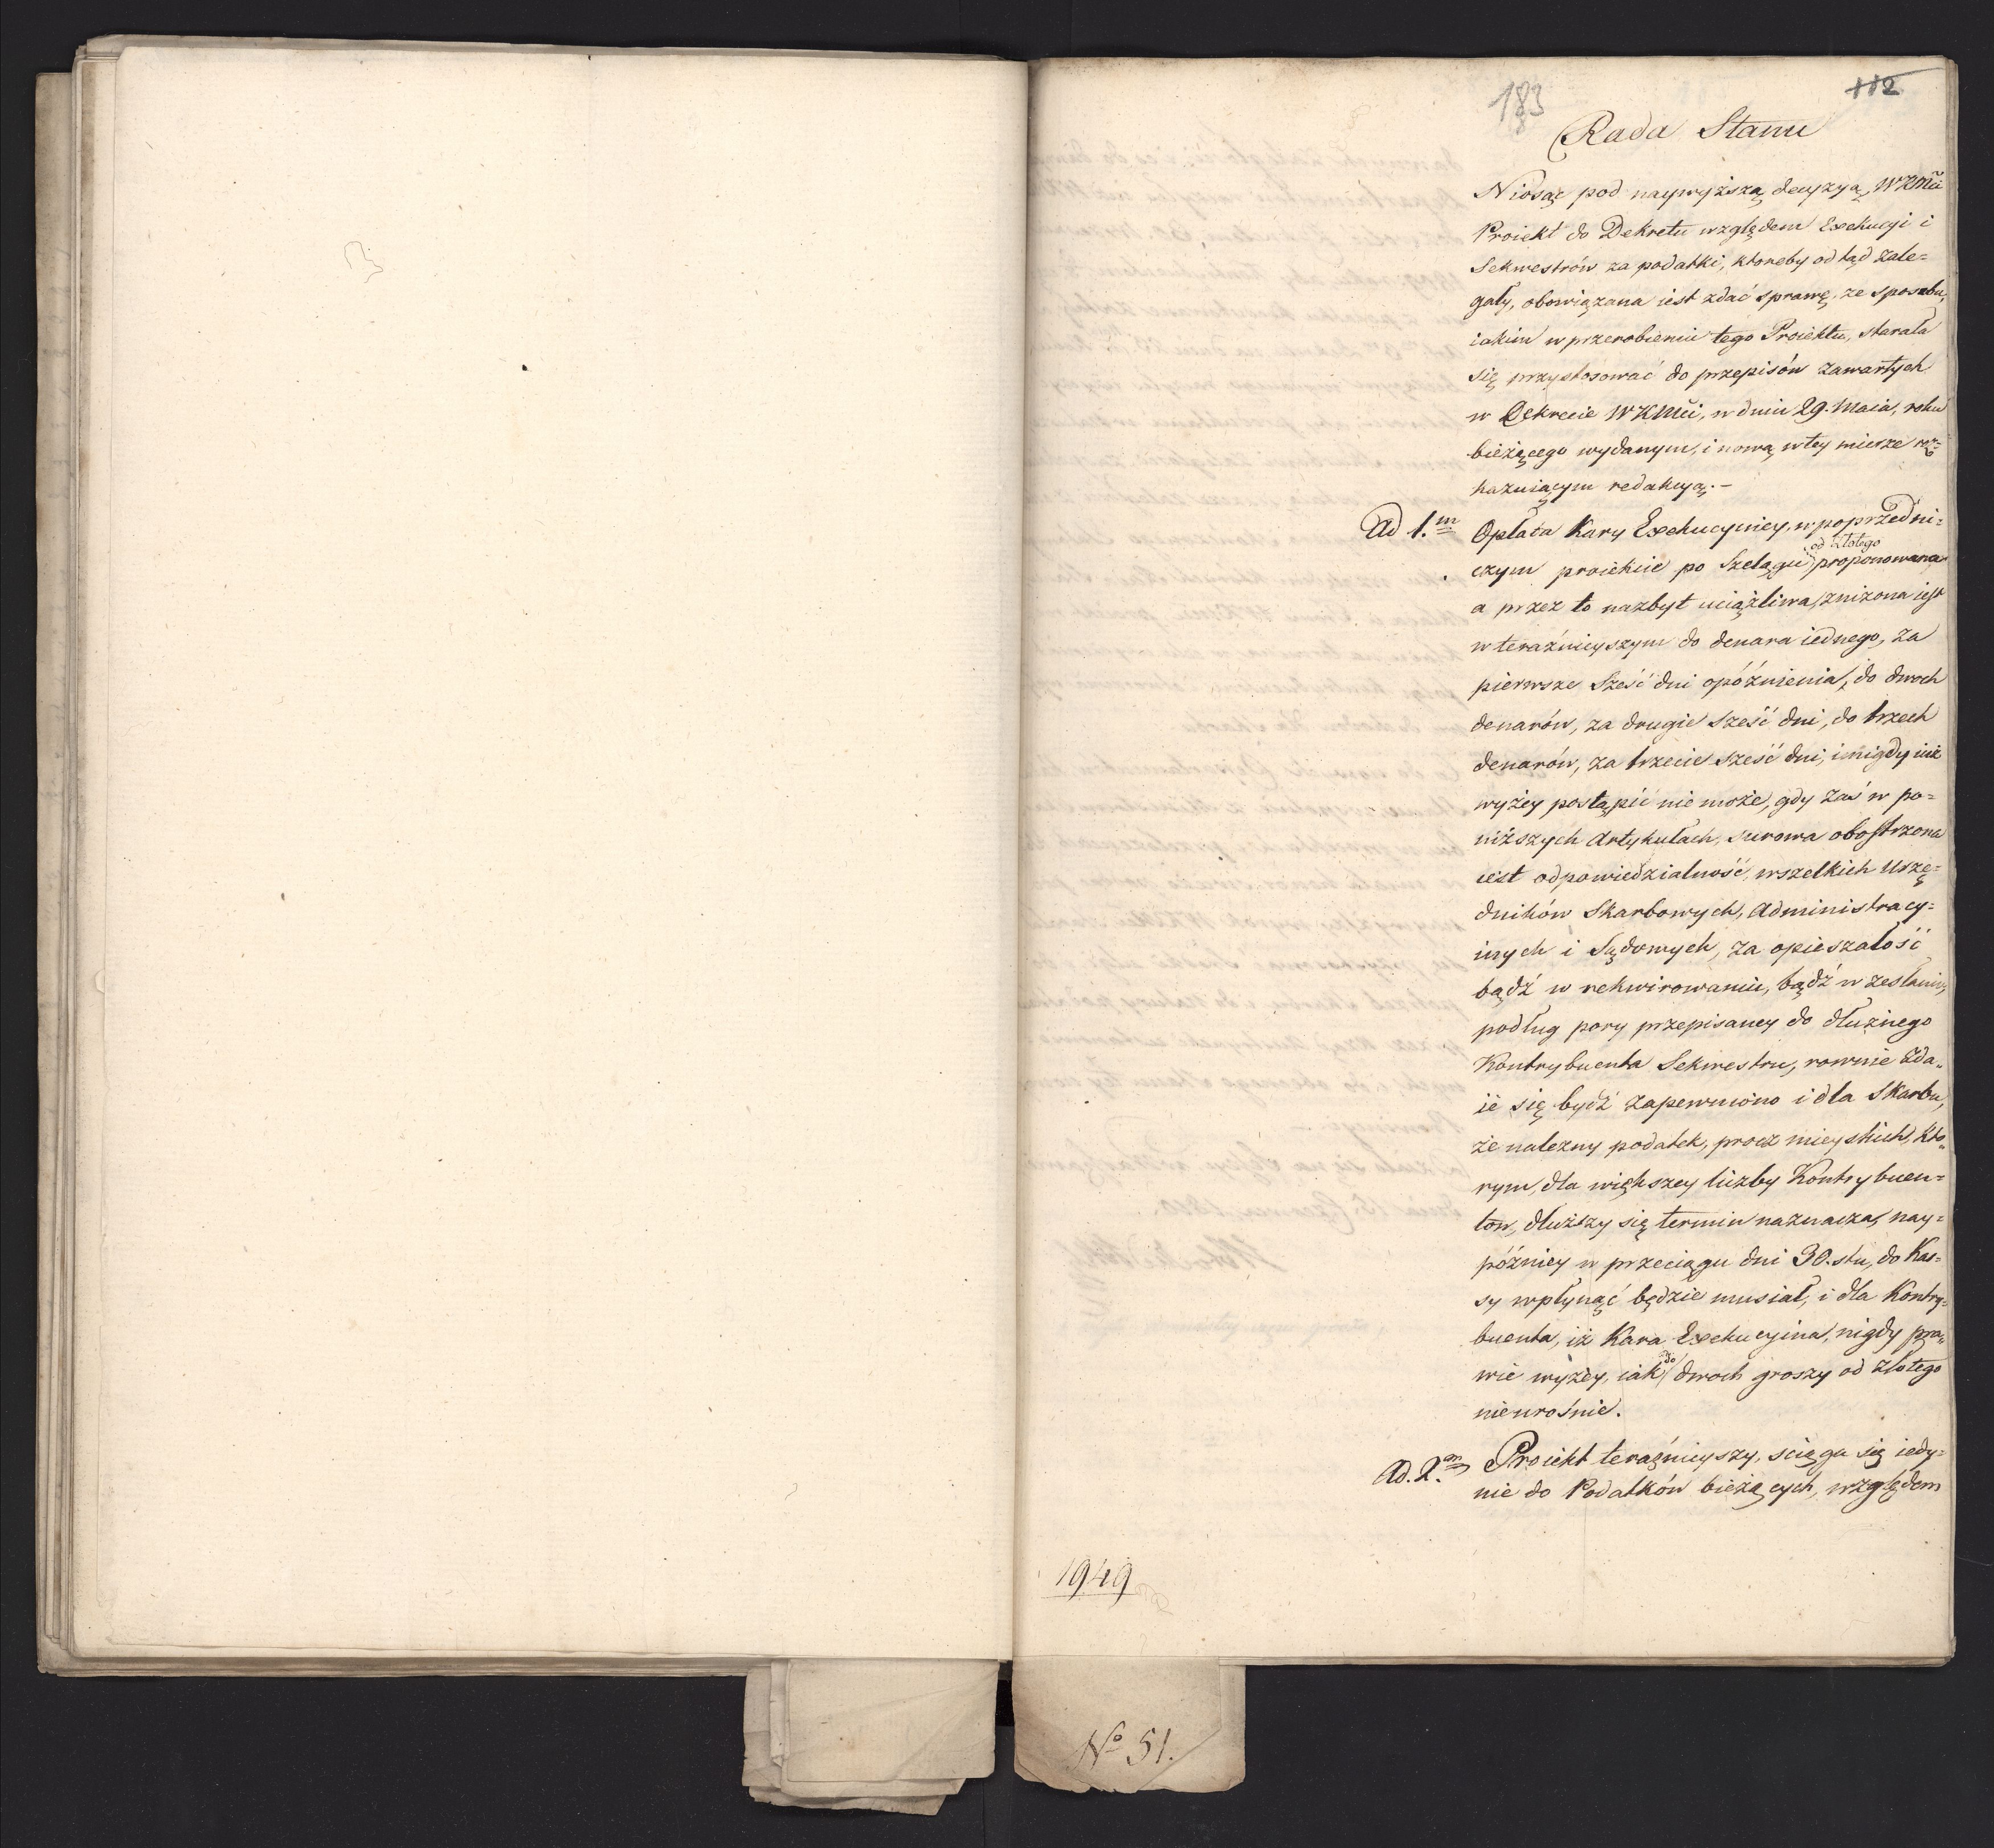 183
112
Rada Stanu
Niosąc pod naywyższą decyzyą, WKMci
Proiekt do Dekretu względem Exekucyi i
Sekwestrów za podatki, ktoreby odtąd zale=
gały, obowiązana iest zdać sprawę, ze sposobu,
iakim w przerobieniu tego Proiektu, starała
się przystosować do przepisów zawartych
w Dekrecie WKMci, w dniu 29. Maia, roku
bieżącego wydanym, i nową w tey mierze roz=
kazuiącym redakcyą. -
Ad 1.m Opłata Kary Exekucyiney, w poprzedni=
od złotego
czym proiekcie po Szelągu proponowana
a przez to nazbyt uciążliwa, zniżona iest
w teraźnieyszym do denara iednego, za
pierwsze sześć dni opóźnienia, do dwoch
denarów, za drugie sześć dni, do trzech
denarów, za trzecie sześć dni, i nigdy iuż
wyżey postąpić nie może, gdy zaś w po=
niższych Artykułach, surowa obostrzona
iest odpowiedzialność, wszelkich Urzę=
dników Skarbowych, Administracy=
inych i Sądowych, za opieszałość
bądź w rekwirowaniu, bądź w zesłaniu,
podług pory przepisaney do dłużnego
Kontrybuenta Sekwestru, rownie zda=
ie się bydź zapewniono i dla Skarbu,
że należny podatek, procz mieyskich, kto=
rym, dla większey liczby Kontrybuen=
tow, dłuższy się termin naznacza, nay=
późniey w przeciągu dni 30.stu, do Kas=
sy wpłynąć będzie musiał, i dla Kontry=
buenta, iż Kara Exekucyina, nigdy pra=
do
wie wyżey, iak dwoch groszy od złotego
nieurośnie.
Ad. 2.m Proiekt teraźnieyszy, sciąga się iedy=
nie do Podatków bieżących, względem
1949
No 51.